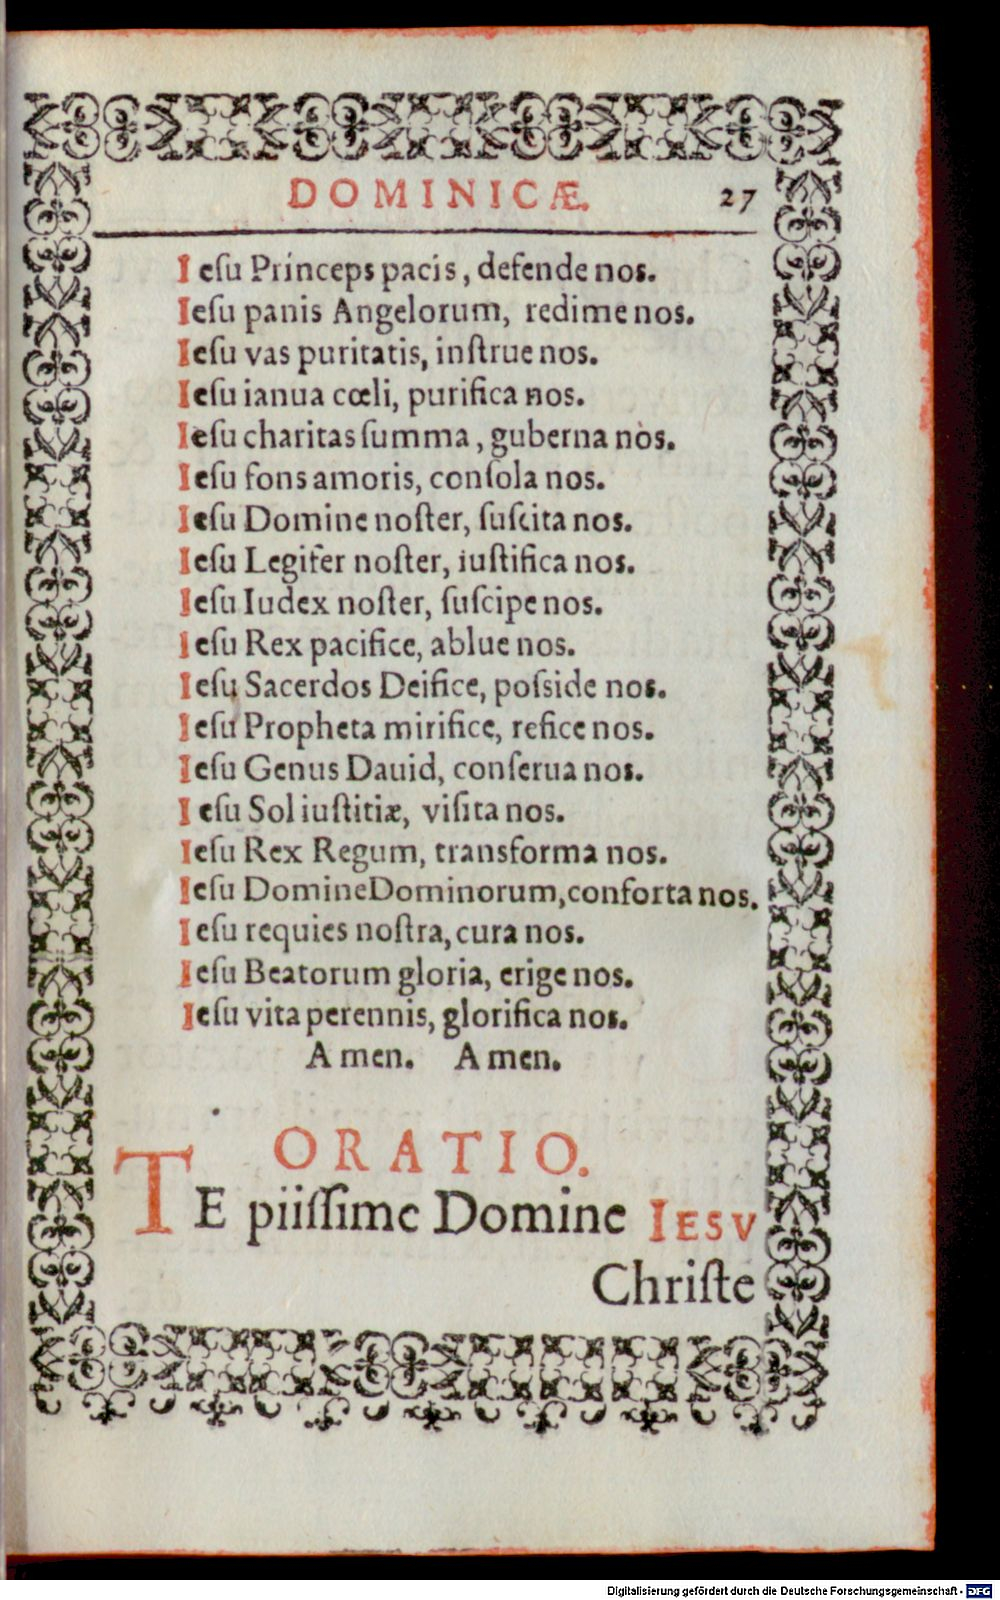 DOMINICÆ. 27
Ieſu Princeps pacis, defende nos.
Ieſu panis Angelorum, redime nos.
Ieſu vas puritatis, inſtrue nos.
Ieſu ianua cœli, purifica nos.
Ieſu charitas ſumma, guberna nos.
Ieſu fons amoris, conſola nos.
Ieſu Domine noſter, ſuſcita nos.
Ieſu Legifer noſter, iuſtifica nos.
Ieſu Iudex noſter, ſuſcipe nos.
Ieſu Rex pacifice, ablue nos.
Ieſu Sacerdos Deifice, poſside nos.
Ieſu Propheta mirifice, refice nos.
Ieſu Genus Dauid, conſerua nos.
Ieſu Sol iuſtitiæ, viſita nos.
Ieſu Rex Regum, transforma nos.
Ieſu Domine Dominorum, conforta nos.
Ieſu requies noſtra, cura nos.
Ieſu Beatorum gloria, erige nos.
Ieſu vita perennis, glorifica nos.
Amen. Amen.
ORATIO.
TE piiſſime Domine IESV
Chriſte
Digitalisierung gefördert durch die Deutsche Forschungsgemeinschaft - DFG